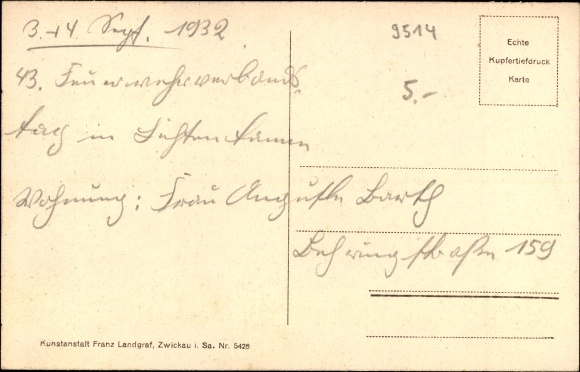 3.+4. Sept. 1932
9514
5.-
Echte
Kupfertiefdruck
Karte
43. Feuerwehrverbands-
tag in Lichtentanne
Wohnung: Frau Auguste Barth
Behringstraße 159
Kunstanstalt Franz Landgraf, Zwickau i. Sa. Nr. 5426